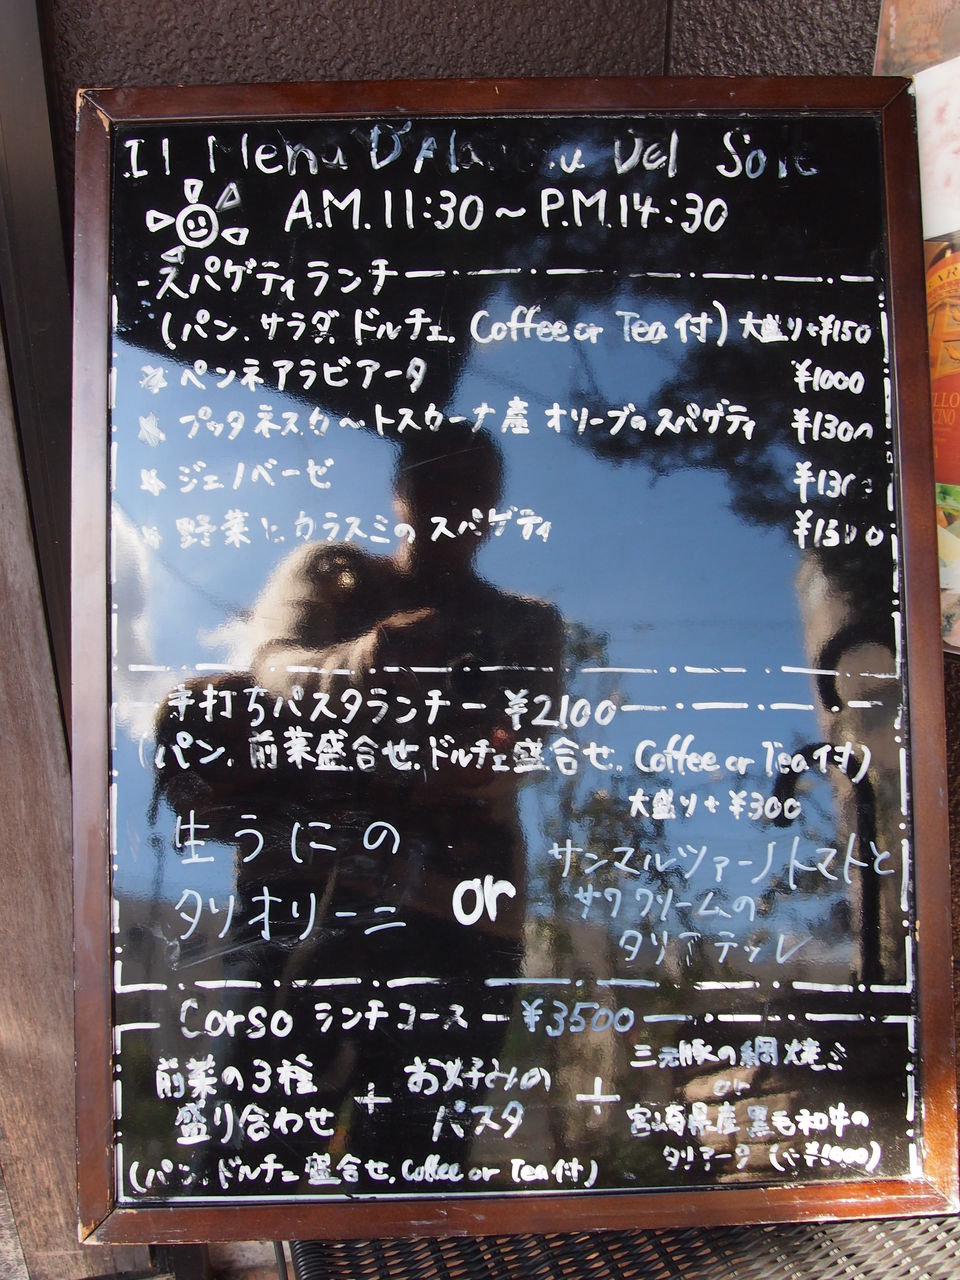 Il Menu Del Sole
A.M.11:30~P.M.14:30
-スパゲティランチ
(パン、サラダ、ドルチェ、Coffee or Tea付)大盛り+¥150
ペンネアラビアータ ¥1000
プッタネスカ~トスカーナ産 オリーブのスパゲティ ¥1300
ジェノベーゼ
野菜とカラスミのスパゲティ ¥1500
手打ちパスタランチ - ¥2100
(パン、前菜盛合せ、ドルチェ盛合せ、Coffee or Tea付)
大盛り+¥300
生うにの
タリオリーニ
or
サンマルツァーノトマトと
サワクリームの
タリアテッレ
Corso ランチコース - ¥3500
前菜の3種
盛り合わせ
+
お好みの
パスタ
+
三元豚の網焼き
or
宮崎県産黒毛和牛の
タリアータ
(パン、ドルチェ盛合せ、Coffee or Tea付)